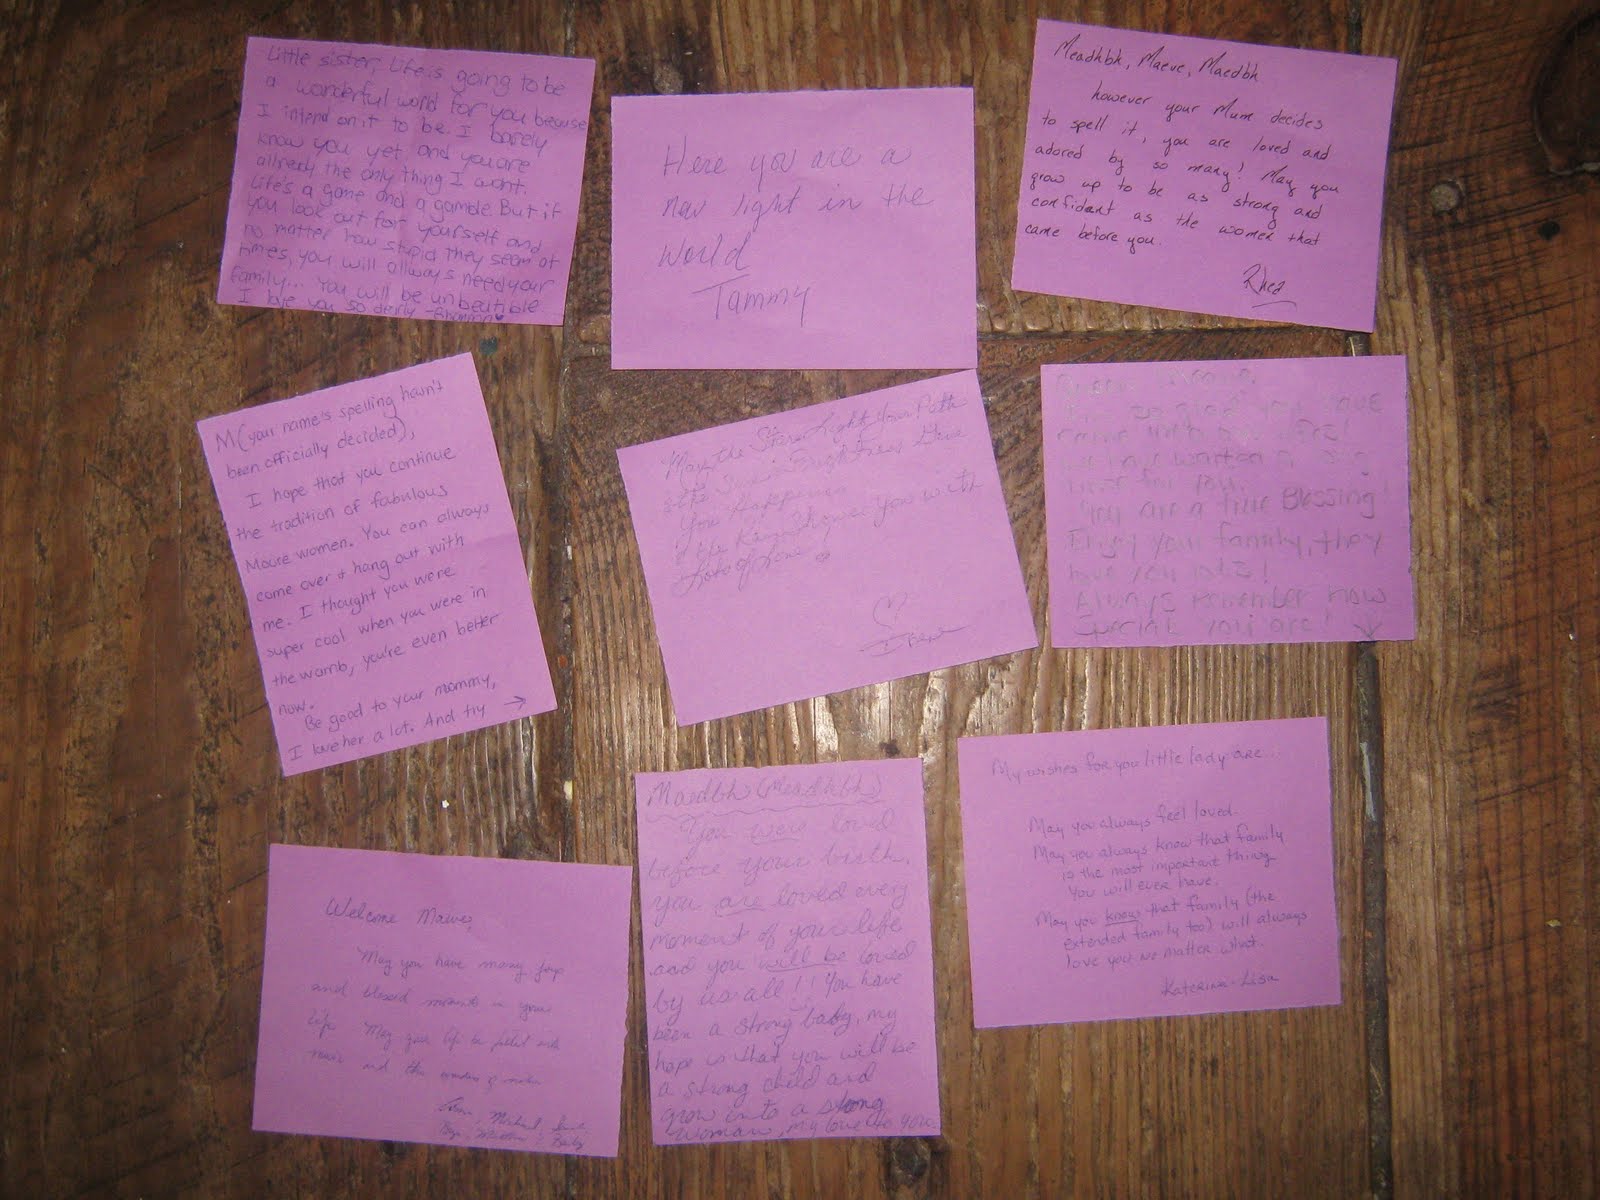 Little sister, Life is going to be
a wonderful world for you because
I intend on it to be. I barely
know you yet, and you are
allready the only thing I want.
Life's a game and a gamble. But if
you look out for yourself and
no matter how stupid they seem at
times, you will allways need your
family... You will be unbeatible
I love you so derly
Here you are a
new light in the
world
Tammy
Meadhbh, Maeve, Maedbh
however your Mum decides
to spell it, you are loved and
adored by so many! May you
grow up to be as strong and
confident as the women that
came before you.
Rhea
M (your name's spelling hasn't
been officially decided),
I hope that you continue
the tradition of fabulous
Moore women. You can always
come over & hang out with
me. I thought you were
super cool when you were in
the womb, you're even better
now.
Be good to your mommy,
I love her a lot. And try →
May the Stars Light Your Path
& the Sun's Brightness Give
You Happiness
& the Rain Shower You with
Lots of Love
I'm so glad you have
came into our lives!
We have waited a long
time for you.
You are a true Blessing!
Enjoy your family, they
love you lots!
Always remember how
Special you are! ↓
Welcome Maeve,
May you have many joys
and blessed moments in your
life. May your life be filled with
music and the wonders of nature
Maedbh (Meadhbh)
You were loved
before your birth,
you are loved every
moment of your life
and you will be loved
by us all!! You have
been a strong baby, my
hope is that you will be
a strong child and
grow into a strong
woman, my love to you.
My wishes for you little lady are...
May you always feel loved.
May you always know that family
is the most important thing
you will ever have.
May you know that family (the
extended family too) will always
love you no matter what.
Katerina-Lisa